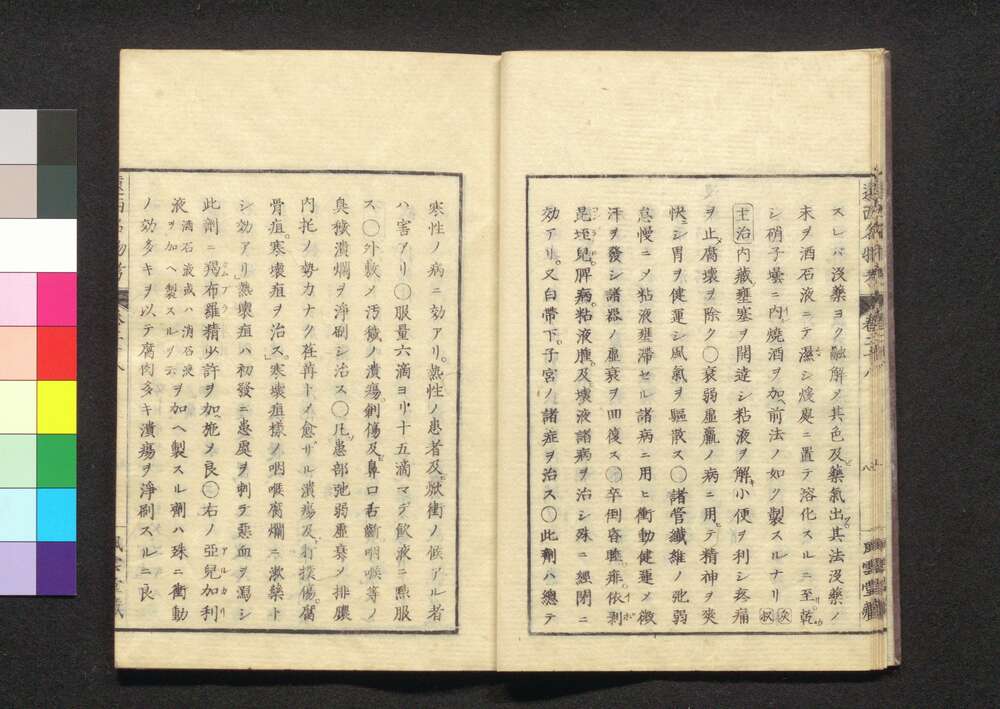 スレバ没藥ヨク融解メ其色及藥氣出其法没藥ノ
末ヲ酒石液ニテ濕シ煖處ニ置テ溶化スルニ至乾
シ硝子壜ニ内燒酒ヲ加前法ノ如ク製スルナリ
主治内藏壅塞ヲ開達シ粘液ヲ解小便ヲ利シ疼痛
ヲ止腐壞ヲ除ク〇衰弱虚羸ノ病ニ用テ精神ヲ爽
快シ胃ヲ健運シ風氣ヲ驅散ス〇諸管纖維ノ弛弱
怠慢ニメ粘液壅滯セル諸病ニ用ヒ衝動健運メ微
汗ヲ發シ諸器ノ虚衰ヲ回復ス〇卒倒昏睡瘫依剥
昆垤兒脾病粘液腫及壞液諸病ヲ治シ殊ニ經閉ニ
効アリ又白帶下子宮ノ諸症ヲ治ス〇此劑ハ總テ
寒性ノ病ニ効アリ熱性ノ患者及焮衝ノ候アル者
ハ害アリ〇服量六滴ヨリ十五滴マデ飲液ニ點服
ス〇外敷メ汚穢ノ潰瘍剣傷及鼻口舌齗咽喉等ノ
臭穢潰爛ヲ淨刷シ治ス〇凡患部弛弱虚衰メ排膿
内托ノ勢力ナク荏苒トメ愈ザル潰瘍及打撲傷腐
骨疽寒壞疽ヲ治ス寒壞疽樣ノ咽喉腐爛ニ漱藥ト
シ効アリ熱壞疽ハ初發ニ患處ヲ刺テ惡血ヲ瀉シ
此劑ニ羯布羅精少許ヲ加施メ良〇右ノ亞兒加利
液酒石液或ハ消石液ヲ加ヘ製スルヲヲ加ヘ製スル劑ハ殊ニ衝動
ノ効多キヲ以テ腐肉多キ潰瘍ヲ淨刷スルニ良